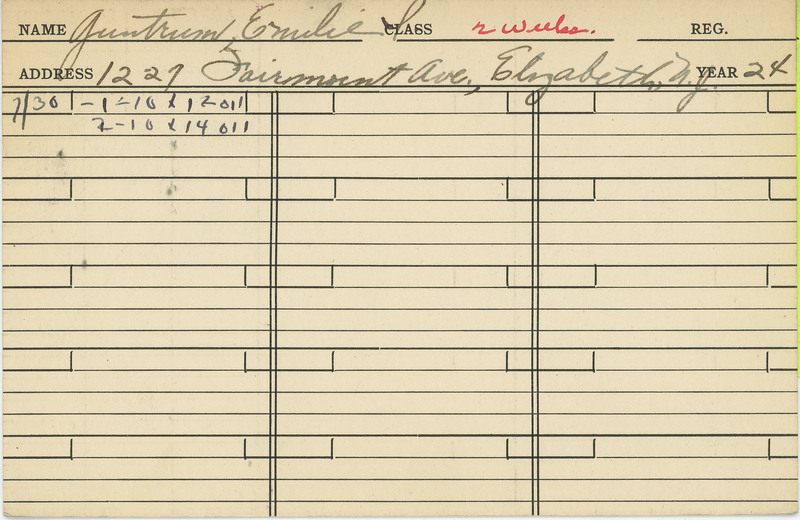 NAME Guntrum, Emilie S CLASS 2 Weeks. REG.
ADDRESS 1227 Fairmount Ave., Elizabeth, N.J. YEAR 24
7/30 -1-10 x 12 oil
2-10 x 14 oil